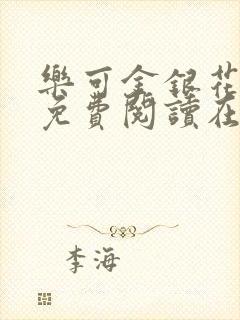 樂可金銀花
免費閱讀在
李海